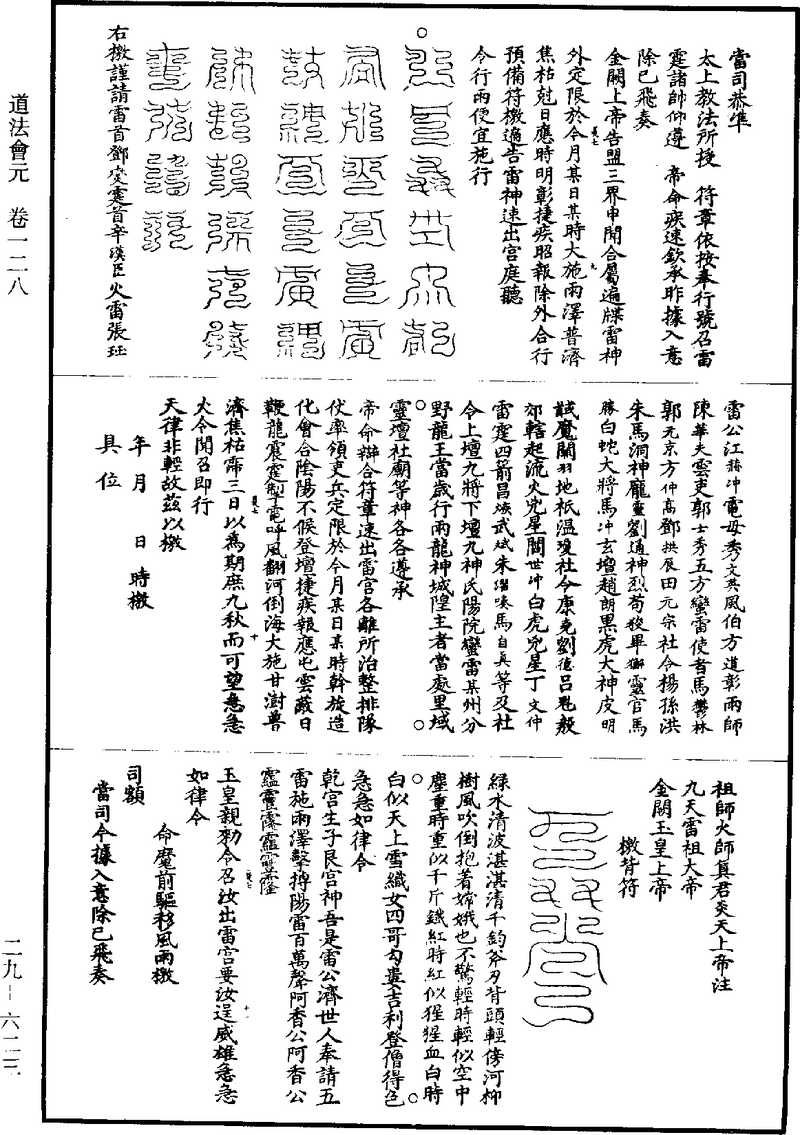 道法會元　卷一二八
當司恭準
太上教法所授　符章依按奉行號召雷
霆諸帥仰遵　帝命疾速欽承昨據入意
除已飛奏
金闕上帝告盟三界申聞合屬遍牒雷神
外定限於今月某日某時大施雨澤普濟
焦枯剋日應時明彰捷疾昭報除外合行
預備符檄遍告雷神速出宮庭聽
令行雨便宜施行
右檄謹請雷首鄧變霆首辛漢臣火雷張珏
雷公江赫冲電母秀文英風伯方道彰雨師
陳華夫雲吏郭士秀五方蠻雷使者馬鬱林
郭元京方仲高鄧拱辰田元宗社令楊孫洪
朱馬洞神龐靈劉通神烈苟後畢鄉靈官馬
勝白蛇大將馬冲玄壇趙朗黑虎大神皮明
馘魔關羽地祇溫瓊社令康堯劉德呂魁殺
郊轄起流火兇星閻世冲白虎兇星丁文仲
雷霆四箭昌武斌朱馬自真等及社
令上壇九將下壇九神氏陽院蠻雷某州分
野龍王當歲行雨龍神城隍主者當處里域
靈壇社廟等神各各遵承
帝命辯合符章速出雷宮各離所治整排隊
伏率領吏兵定限於今月某日某時斡旋造
化會合陰陽不候登壇捷疾報應屯雲蔽日
鞭龍震霆掣電呼風翻河倒海大施甘澍普
濟焦枯霈三日以為期庶九秋而可望急急
火令聞召即行
天律非輕故茲以檄
年月　日　時檄
具位
祖師火師真君炎天上帝注
九天雷祖大帝
金闕玉皇上帝
檄背符
綠水清波湛湛清千鈞斧刃背頭輕傍河柳
樹風吹倒抱著嫦娥也不驚輕時輕似空中
塵重時重似千斤鐵紅時紅似猩猩血白時
白似天上雪織女四哥勾婁吉利登僧得邑
急急如律令
乾宮生子艮宮神吾是雷公濟世人奉請五
雷施雨澤擊搏陽雷百萬聲阿香公阿香公
玉皇親勑令召汝出雷宮要汝逞威雄急急
如律令
命魔前驅移風雨檄
司額
當司今據入意除已飛奏
二九－六二三